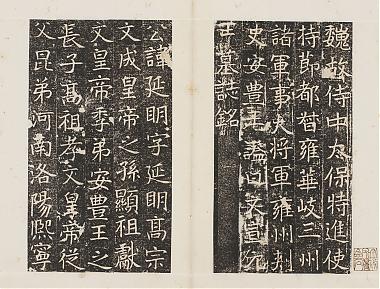 魏故侍中太保特進使
持節都督雍華岐三州
諸軍事大將軍雍州刺
史安豐王謚曰文宣元
王墓誌銘
公諱延明字延明髙宗
文成皇帝之孫顯祖獻
文皇帝季弟安豐王之
長子髙祖孝文皇帝從
父昆弟河南洛陽熙寧